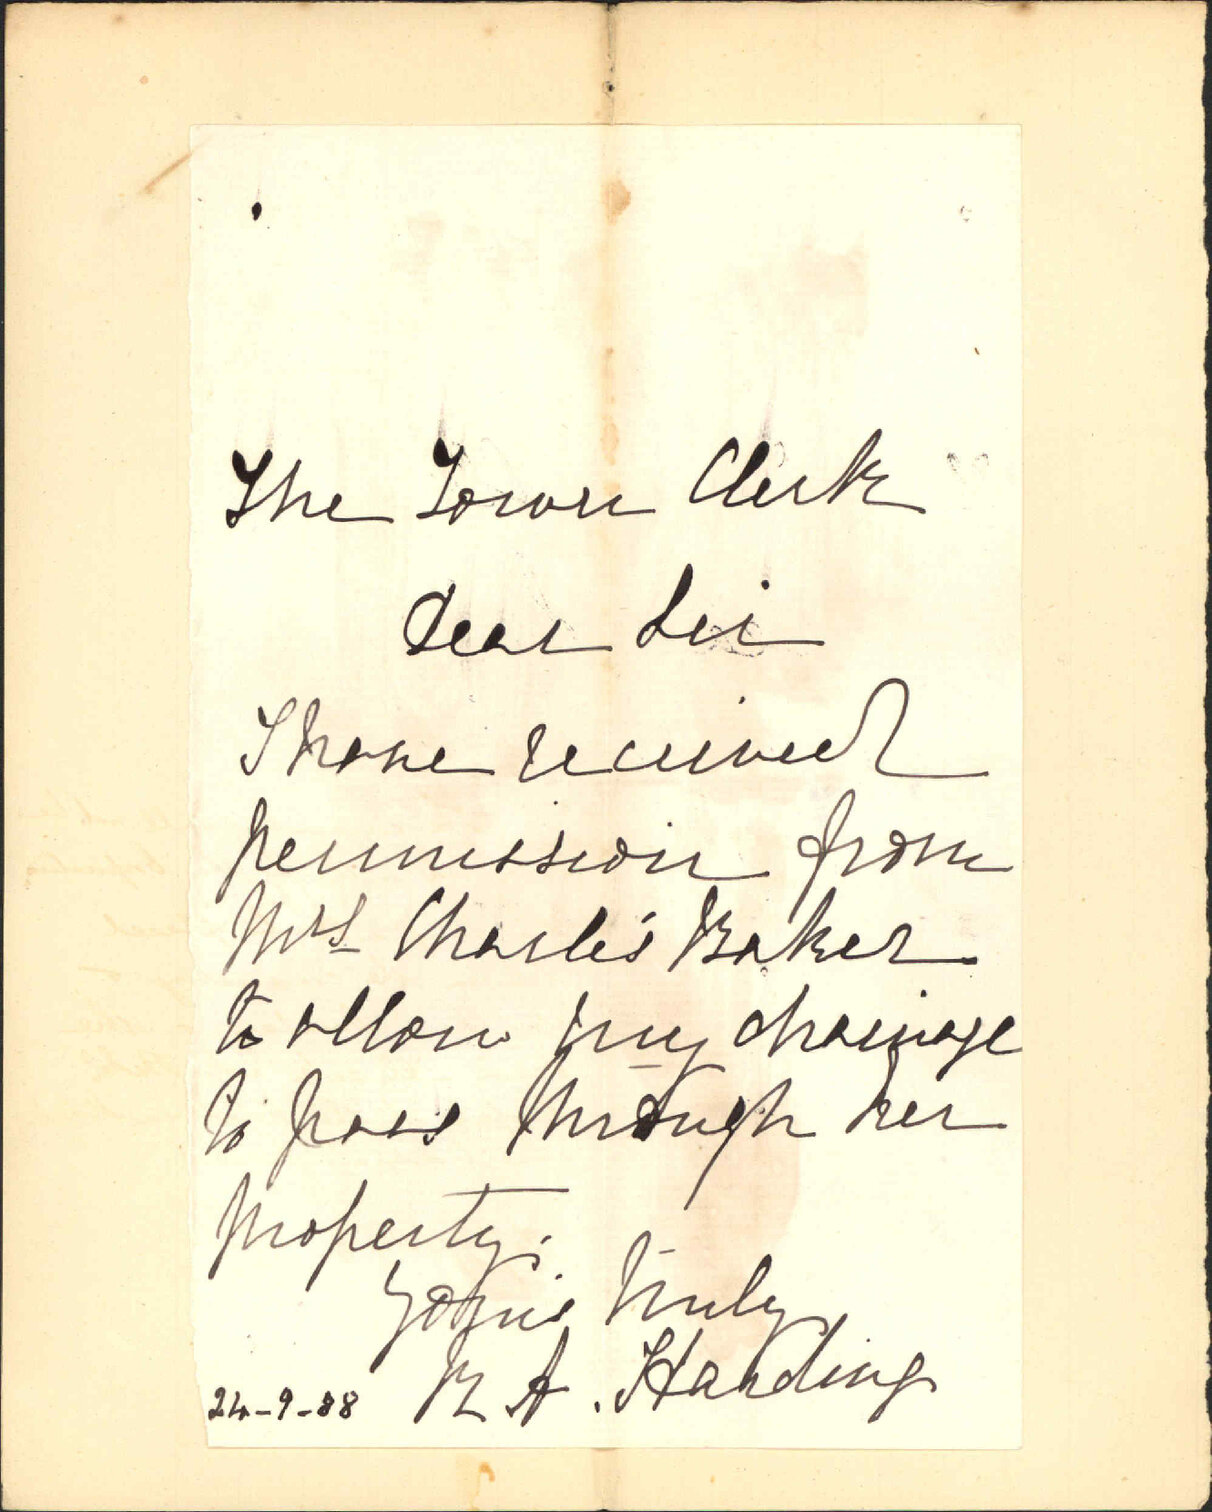 The Town Clerk
Dear Sir
I have received
permission from
Mrs Charles Baker
to allow my drainage
to pass through her
property.
Yours truly
A. Harding
24-9-88